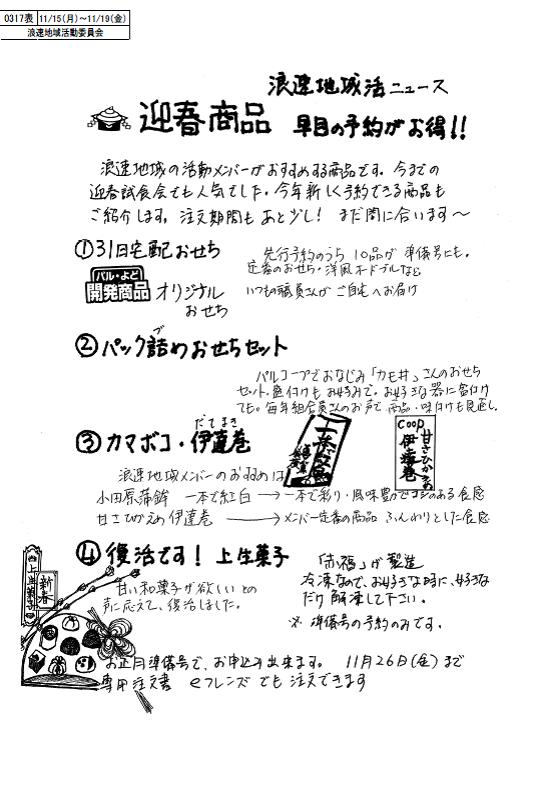 0317表 11/15(月)～11/19(金)
浪速地域活動委員会
浪速地域活ニュース
迎春商品 早目の予約がお得!!
浪速地域の活動メンバーがおすすめする商品です。今までの
迎春試食会でも人気でした。今年新しく予約できる商品も
ご紹介します。注文期間もあと少し! まだ間に合います～
①31日宅配おせち
先行予約のうち 10品が 準備号にも。
定番のおせち・洋風オードブルなど
いつもの職員さんが ご自宅へお届け
パル・よど
開発商品
オリジナル
おせち
②パック詰めおせちセット
づ
パルコープでおなじみ「カモ井」さんのおせち
セット。盛付けもお好みで。お好きな器に盛付け
ても。毎年組合員さんのお声で商品・味付けも見直し。
③カマボコ・伊達巻
だてまき
coop
甘さひかえめ
伊達巻
浪速地域メンバーのおすすめは
小田原蒲鉾 一本で紅白 → 一本で彩り・風味豊かでコシのある食感
甘さひかえめ伊達巻 → メンバー定番の商品 ふんわりとした食感
④復活です! 上生菓子
「赤福」が製造
冷凍なので、お好きな時に、お好きな
だけ解凍して下さい。
※ 準備号の予約のみです。
甘い和菓子が欲しいとの
声に応えて、復活しました。
上生菓子
新春
お正月準備号で、お申込み出来ます。 11月26日(金)まで
専用注文書 eフレンズでも注文できます